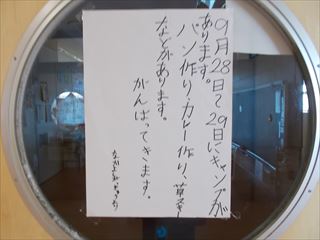 9月28日と29日にキャンプが
あります。
パン作り、カレー作り、草そり
などがあります。
がんばってきます。